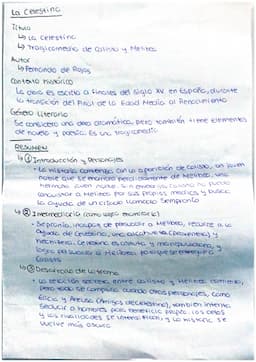 La Celestina
Título
↳ La Celestina
↳ Tragicomedia de Calisto y Melibea
Autor
↳ Fernando de Rojas
Contexto histórico
La obra es escrita a finales del siglo XV en España, durante
la transición del final de la Edad Media al Renacimiento
Género literario
Se considera una obra dramática, pero también tiene elementos
de novela y poesía. Es una tragicomedia
RESUMEN
↳ ① Introducción y Personajes
La historia comienza con la aparición de Calisto, un joven
noble que se enamora perdidamente de Melibea, una
hermosa joven noble. Sin embargo, Calisto no puede
conquistar a Melibea por sus propios medios y busca
la ayuda de un criado llamado Sempronio
↳ ② Intermediaria (como
Sempronio, incapaz de persuadir a Melibea, recurre a la
ayuda de Celestina, una
hechicera. Celestina es astuta y manipuladora, y
logra persuadir a Melibea para que se
Calisto
↳ ③ Desarrollo de la trama
La relación secreta entre Calisto y Melibea comienza,
pero todo se complica cuando otros personajes, como
Elicia y Areúsa (amigas de Celestina), también intentan
seducir a hombres para beneficio propio. Los celos
y las rivalidades se intensifican, y la historia se
vuelve más oscura